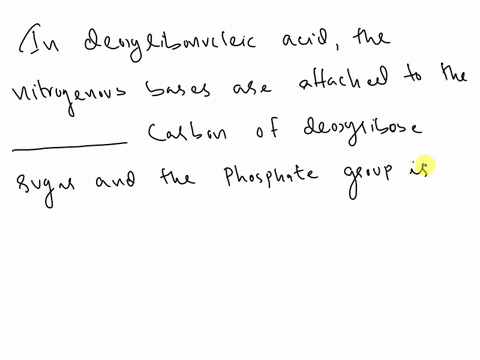 In deoxyribonucleic acid, the
nitrogenous bases are attached to the
________ Carbon of deoxyribose
sugar and the Phosphate group is